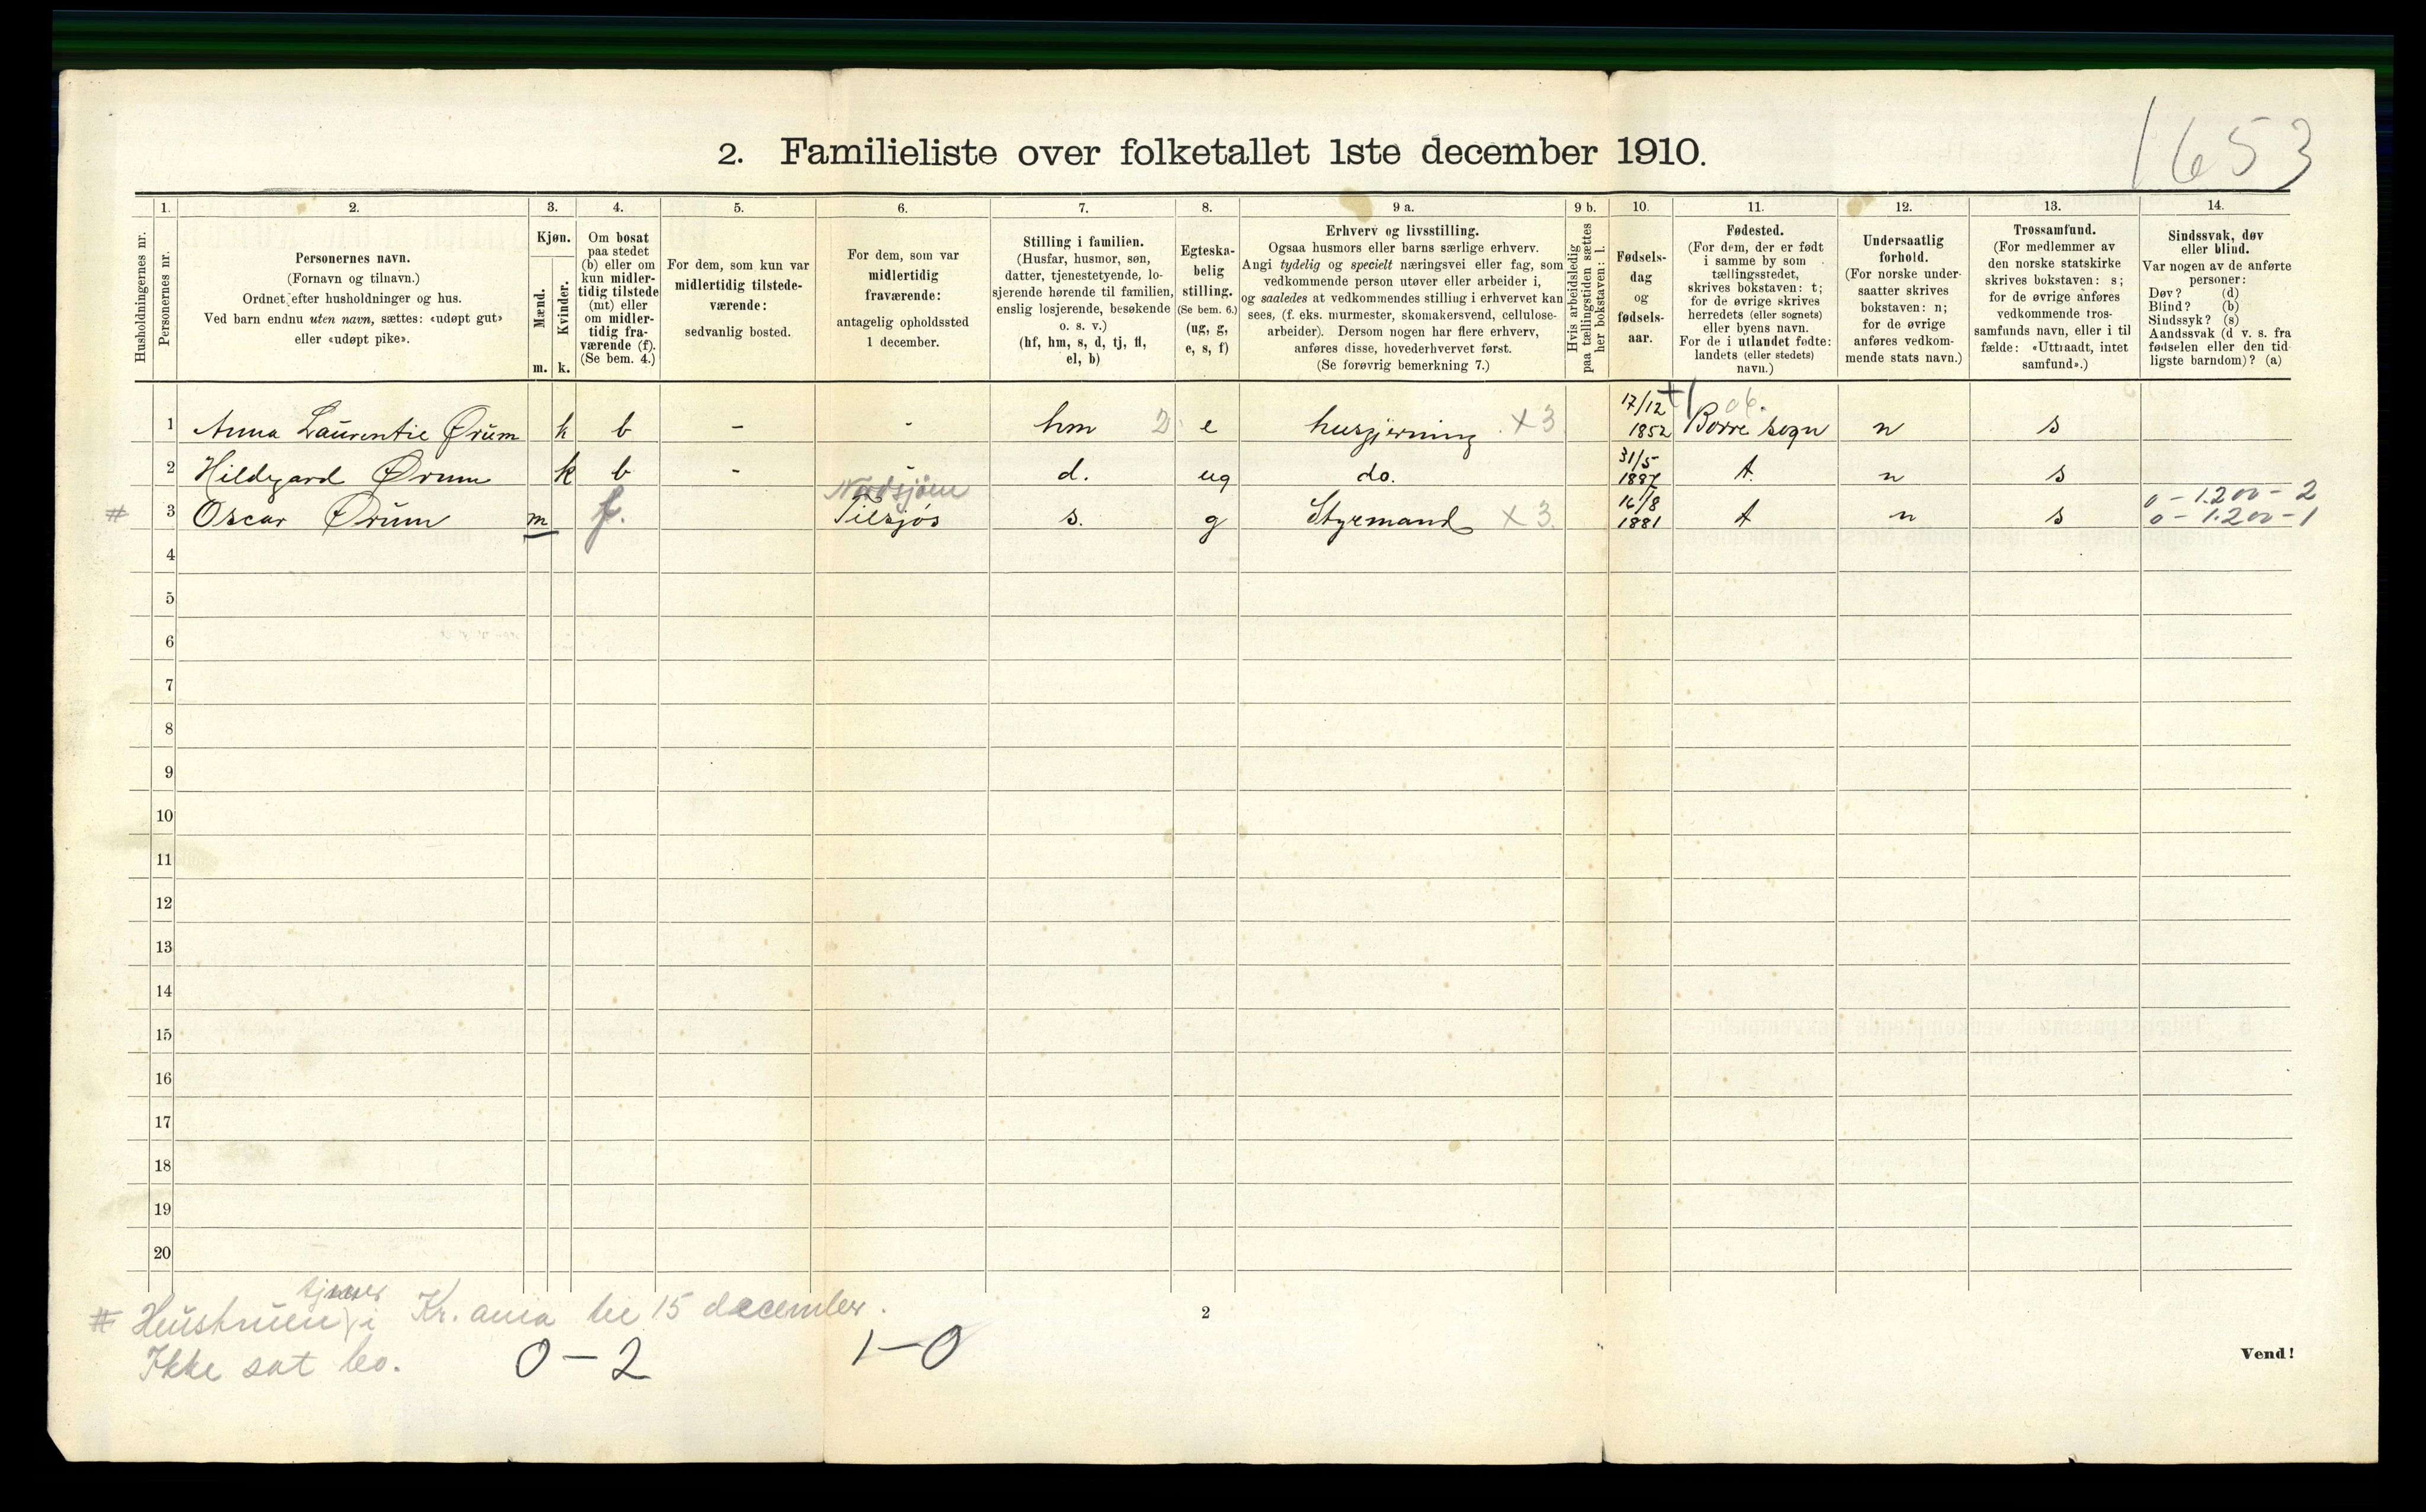 1653
2. Familieliste over folketallet 1ste december 1910.
Husholdningernes nr.
1.
Personernes nr.
2.
Personernes navn.
(Fornavn og tilnavn.)
Ordnet efter husholdninger og hus.
Ved barn endnu uten navn, sættes: «udøpt gut»
eller «udøpt pike».
3.
Kjøn.
Mænd.
Kvinder.
m.
k.
4.
Om bosat
paa stedet
(b) eller om
kun midler-
tidig tilstede
(mt) eller
om midler-
tidig fra-
værende (f).
(Se bem. 4.)
5.
For dem, som kun var
midlertidig tilstede-
værende:
sedvanlig bosted.
6.
For dem, som var
midlertidig
fraværende:
antagelig opholdssted
1 december.
7.
Stilling i familien.
(Husfar, husmor, søn,
datter, tjenestetyende, lo-
sjerende hørende til familien,
enslig losjerende, besøkende
o. s. v.)
(hf, hm, s, d, tj, fl,
el, b)
8.
Egteska-
belig
stilling.
(Se bem. 6.)
(ug, g,
e, s, f)
9 a.
Erhverv og livsstilling.
Ogsaa husmors eller barns særlige erhverv.
Angi tydelig og specielt næringsvei eller fag, som
vedkommende person utøver eller arbeider i,
og saaledes at vedkommendes stilling i erhvervet kan
sees, (f. eks. murmester, skomakersvend, cellulose-
arbeider). Dersom nogen har flere erhverv,
anføres disse, hovederhvervet først.
(Se forøvrig bemerkning 7.)
9 b.
Hvis arbeidsledig
paa tællingstiden sættes
her bokstaven: l.
10.
Fødsels-
dag
og
fødsels-
aar.
11.
Fødested.
(For dem, der er født
i samme by som
tællingsstedet,
skrives bokstaven: t;
for de øvrige skrives
herredets (eller sognets)
eller byens navn.
For de i utlandet fødte:
landets (eller stedets)
navn.)
12.
Undersaatlig
forhold.
(For norske under-
saatter skrives
bokstaven: n;
for de øvrige
anføres vedkom-
mende stats navn.)
13.
Trossamfund.
(For medlemmer av
den norske statskirke
skrives bokstaven: s;
for de øvrige anføres
vedkommende tros-
samfunds navn, eller i til
fælde: «Uttraadt, intet
samfund».)
14.
Sindssvak, døv
eller blind.
Var nogen av de anførte
personer:
Døv? (d)
Blind? (b)
Sindssyk? (s)
Aandssvak (d v. s. fra
fødselen eller den tid
ligste barndom)? (a)
1 Anna Laurentie Ørum k b - - hm 2 e husgjerning x 3 17/12 1852 Borre sogn n s
2 Hildegard Ørum k b - - d. ug do. 31/5 1887 t. n s
Nordsjøen
0 - 1.200 - 2
# 3 Oscar Ørum m f. Tilsjøs s. g Styrmand x 3. 16/8 1881 t n s 0 - 1.200 - 1
4
5
6
7
8
9
10
11
12
13
14
15
16
17
18
19
20
tjener
# Hustruen i Kr.ania til 15 december.
Ikke sat bo. 0 - 2 1 - 0
2
Vend!